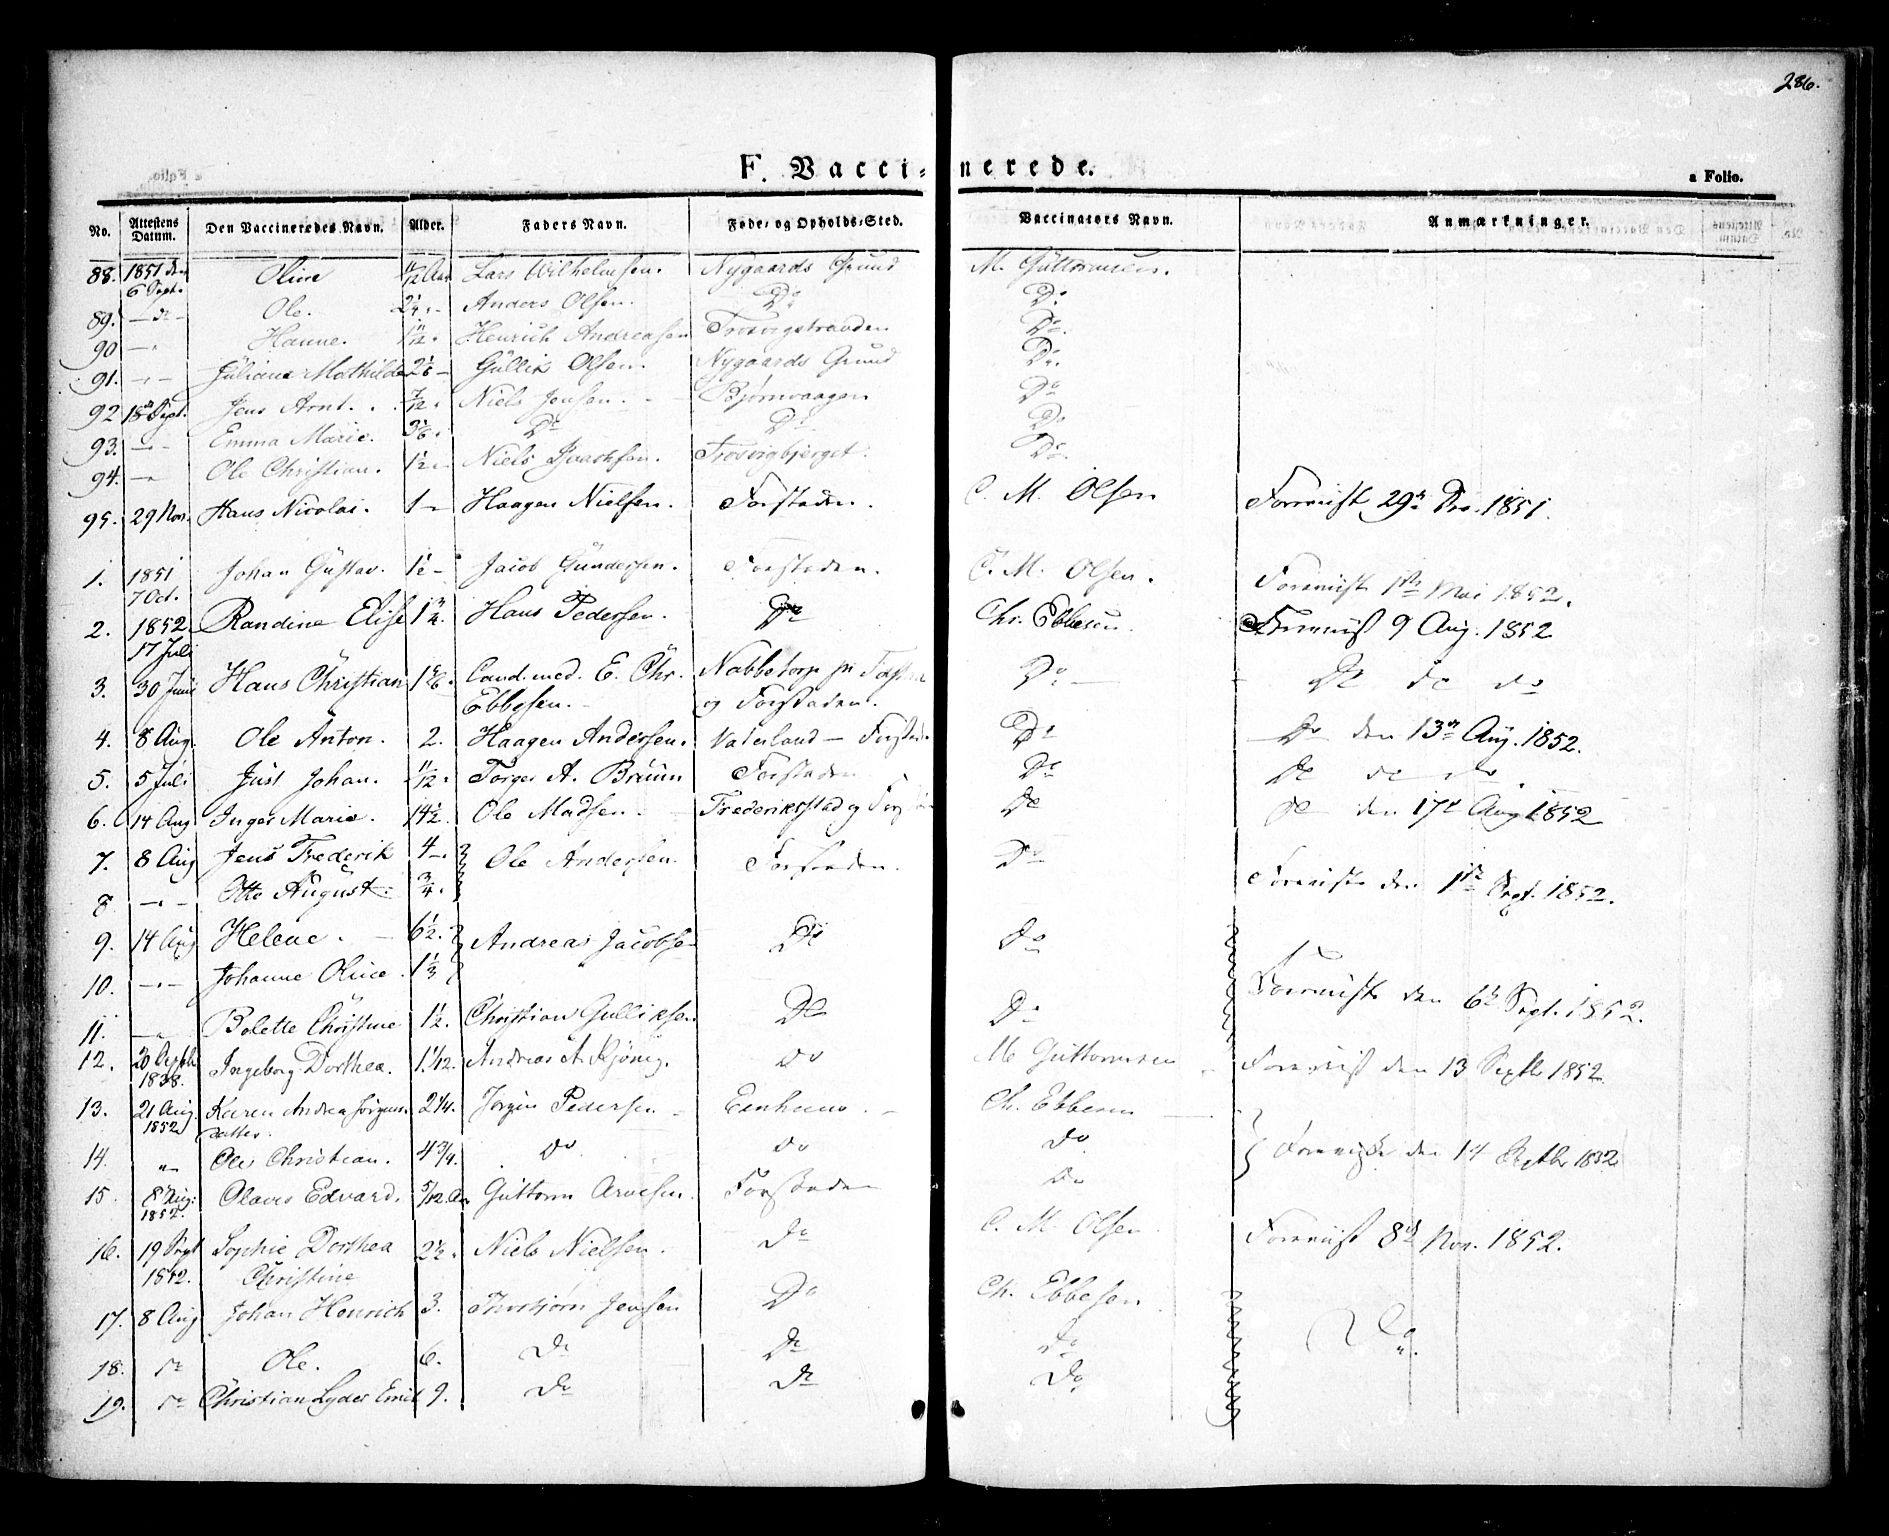 286.
F. Vaccinerede.
a Folio.
No. Attestens Datum. Den Vaccineredes Navn. Alder. Faders Navn. Føde- og Opholds-Sted. Vaccinators Navn. Anmærkninger.
88. 1851 den 6 Sept. Oline Lars Wilhelmsen. Nygaards Grund M. Guttormsen.
89. Ole. Anders Olsen. Do Do
90 Hanne. Henrich Andreasen Trosvigstranden Do
91. Juliane Mathilde Gullik Olsen. Nygaards Grund Do
92 18 Sept. Jens Arnt. 7/12 Niels Jensen. Bjørnvaagen Do
93. Emma Marie. Do Do Do
94. Ole Christian. Niels Isachsen. Trosvigbjerget. Do
95. 29 Nov. Hans Nicolai. 1 Haagen Nielsen. Forstaden. C. M. Olsen Forevist 29 De. 1851.
1. 1851 7 Oct. Johan Gustav. Jacob Gundersen. Forstaden. C. M. Olsen. Forevist 1ste Mai 1852.
2. 1852 17 Juli Randine Elise 1 3/4 Hans Pedersen. Do Chr. Ebbesen. Forevist 9 Aug. 1852
3. 30 Juni Hans Christian Cand. med. E. Chr. Nabbetorp Do Do do do
Ebbesen. og Forstaden.
4. 8 Aug. Ole Anton. 2. Haagen Andersen. Vaterland Do Do den 13 Aug. 1852.
5. 5 Juli Just Johan. 11/12. Torger A. Bruun Forstaden Do Do do do
6. 14 Aug Inger Marie. 14 1/2. Ole Madsen. Frederiksstad og Do Do den 17 Aug 1852
7. 8 Aug Jens Frederik 4 Ole Andersen. Forstaden. Do
8. Otto August 3/4. Forevist den 1ste Sept. 1852.
9. 14 Aug Helene. 6 1/2. Andreas Jacobsen Do Do
10. Johanne Oline. 1 1/3
Forevist den 6 Sept. 1852.
11. Bolette Christine 1 1/2. Christian Gulliksen. Do Do
12. 20 1838. Ingeborg Dorthea. Andreas A. Do M Guttormsen Forevist den 13 Septbr 1852
13. 21 Aug. 1852 Karen Andrea Jørgens datter. 2 1/4. Jørgen Pedersen Eenhuus Ch. Ebbesen
14. Ole Christian. 4 3/4. Do Do Do Forevist den 14 Septbr 1852
15. 8 Aug: 1852. Olaves Edvard. 5/12 Guttorm Arvesen. Forstaden Do
16. 19 Sept 1852. Sophie Dorthea Christine 2 1/2. Niels Nielsen. Do C. M. Olsen Forevist 8 Nov. 1852.
17. 8 Aug Johan Henrich 3. Thorbjørn Jensen Do Ch. Ebbesen Do
18. Ole. 6. Do Do Do
19. Christian Lyder Emil 9. Do Do Do